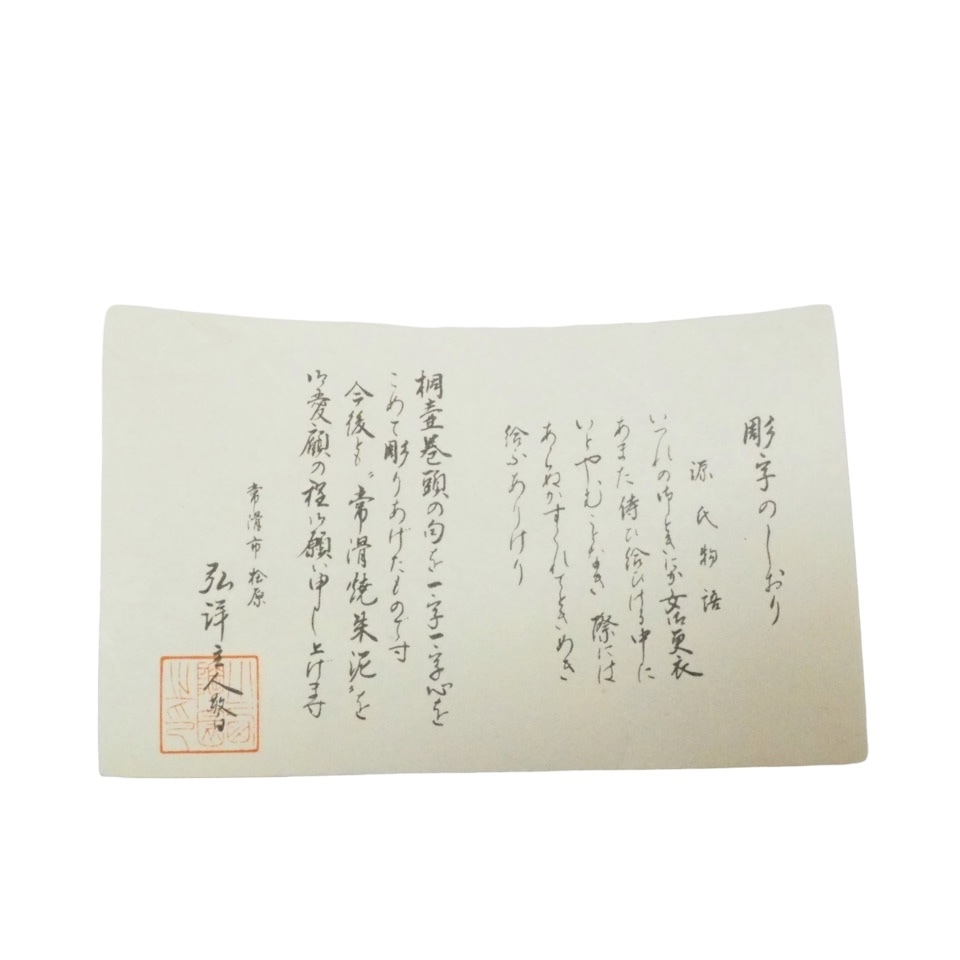 彫字のしおり
源氏物語
いづれの御ときにか女御更衣
あまた侍ひ給ひける中に
いとやむことなき際には
あらぬかすぐれてときめき
給ふありけり
桐壷巻頭の句を一字一字心を
こめて彫りあげたものです
今後とも〝常滑焼朱泥〟を
御愛顧の程御願い申し上げます
常滑市松原
弘洋主人敬白